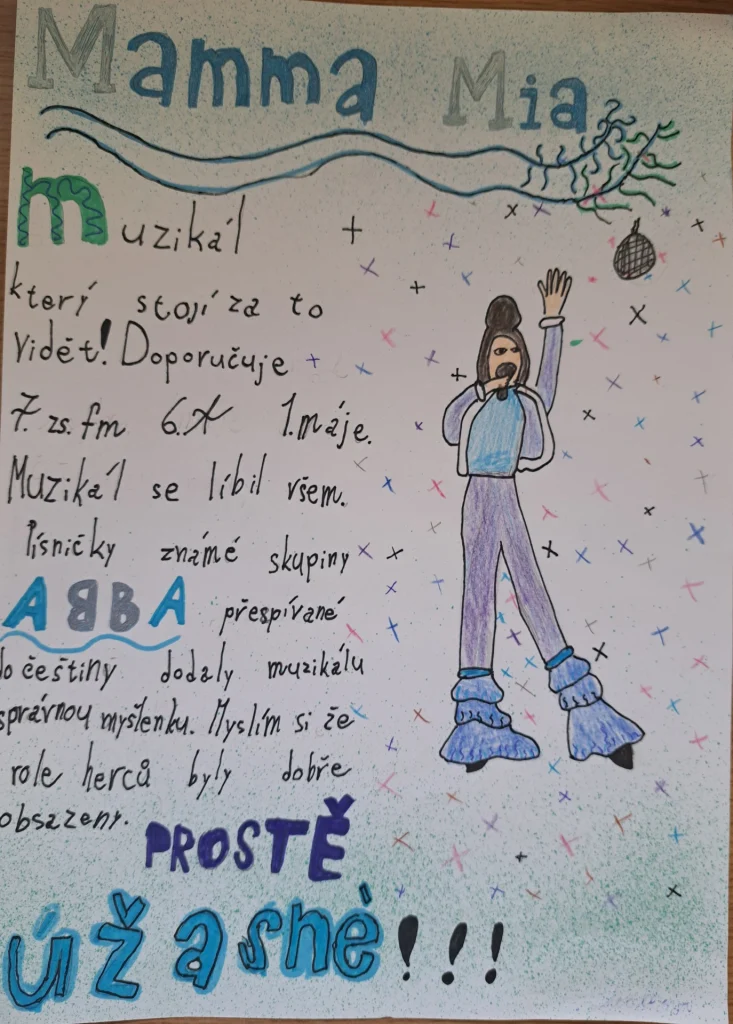 Mamma Mia
Muzikál
který stojí za to
Vidět! Doporučuje
7. zs. fm 6.A 1.máje.
Muzikál se líbil všem.
Písničky známé skupiny
ABBA přespívané
do češtiny dodaly muzikálu
správnou myšlenku. Myslím si že
role herců byly dobře
obsazeny.
PROSTĚ
úžasné!!!